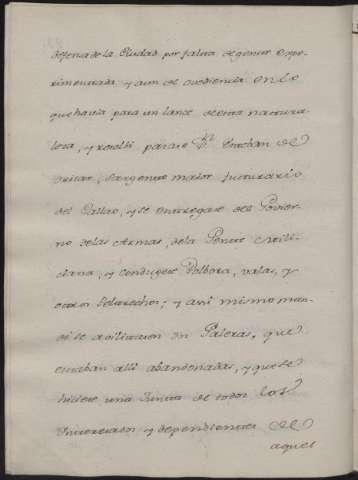 defensa de la Ciudad por falta de gente expe-
rimentada y aun de ovediencia en la
que havia para un lance de esta natura-
leza, y resolbi pasase Dn. Estevan de
Sargento maior futurario
del Callao, y se entregase del Govier-
no de las Armas, de la Gente Mili-
ciana, y condugese Polbora, valas, y
otros Petrechos; y asi mismo man-
de se avilitasen dos Galeras, que
estaban alli abandonadas, y que se
hiciese una Junta de todos los
Interezados y dependientes de
aquel